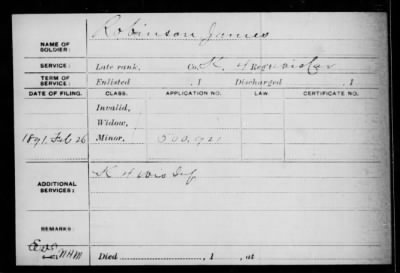 Robinson James
NAME OF SOLDIER:
SERVICE: Late rank, Co. K. 4 Reg't
TERM OF SERVICE: Enlisted , 1 Discharged , 1
DATE OF FILING. CLASS. APPLICATION NO. CERTIFICATE NO.
Invalid,
Widow,
1891 Feb 26 Minor,
ADDITIONAL SERVICES: K 4 Wis Inf
REMARKS:
Died , 1 , at